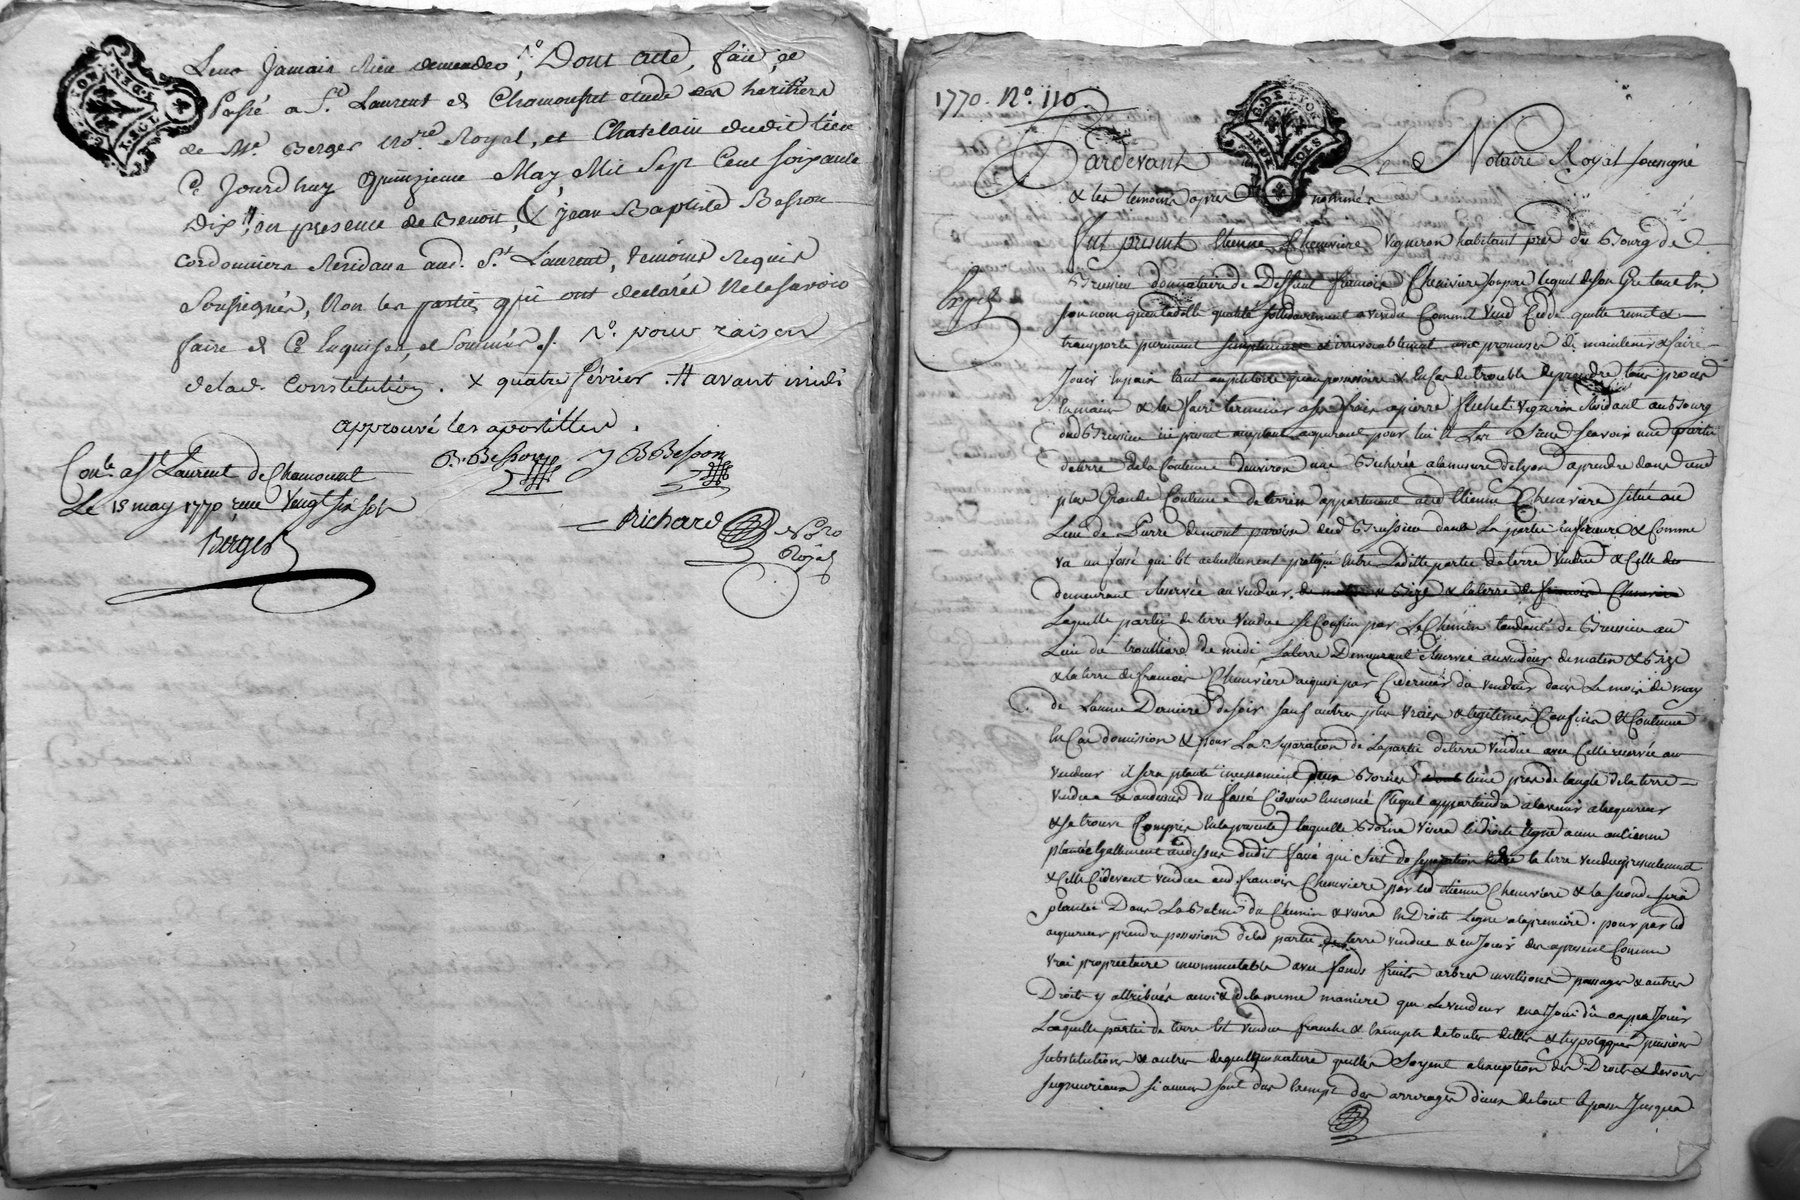 Leur Jamais Rien demander, Dont Acte, fait, et
Passé a St Laurent de Chamousset etude des heritiers
de Me Berger Nore Royal, et Chatelain dudit lieu
Ce Jourdhuy quinzieme May Mil Sept Cent soixante
Dix, en presence de Benoit, & Jean Baptiste Besson
Cordonniers Residans aud. St Laurent, temoins Requis
Soussignés, Non les parties qui ont declarés Ne le savoir
faire de Ce Enquises, et Sommés. pour raison
delad. Constitution. x quatre fevrier. # avant midi
approuvé les apostilles.
B. Besson J B Besson
Conle a St Laurent de Chamousset
Le 15 may 1770 reçu Vingt six sols
Berger
Richard Nore
Royal
1770. No. 110
Pardevant Le Notaire Royal soussigné
& les temoins apres nommés
Fut present Etienne Chenviere Vigneron habitant pres du Bourg de
Brussieu donnataire de Deffunt francois Chenviere son pere lequel de son Gre tant en
son nom qu'en ladille qualité sollidairement a vendu Comme Vend Cede quitte remet &
transporte purement simplement et irrevocablement avec promesse de maintenir & faire
Jouir en paix tant au petitoire qu'au possessoire & En Cas de trouble de prendre tous proces
En mains & les faire terminer a ses frais a pierre Vigneron Residant au Bourg
dud Brussieu icy present acceptant acquereur pour lui & Les Siens Scavoir une partie
de terre de la Contenue d'environ une Bicherée a la mesure de Lyon a prendre dans une
plus Grande Contenue de terrin appartenant aud Etienne Chenviere situé au
Lieu de paroisse dud Brussieu dans La partie inferieure & Comme
va un fossé qui Est actuellement pratiqué Entre Laditte partie de terre Vendue & Celle
demeurant Reservée au vendeur. & Bize & la terre de francois Chenviere
Laquelle partie de terre Vendue se Confine par Le Chemin tendant de Brussieu au
Lieu du de midi, La terre Demeurant Reservée au vendeur de matin & Bize
& la terre de francois Chenviere acquise par Ce dernier du vendeur dans Le mois de may
de Lannee Derniere de soir sauf autres plus vrais & legitimes Confins & Contenue
En Cas domission & pour La Separation de La partie de terre Vendue avec Celle reservée au
vendeur il sera planté incessament deux Bornes lune pres de langle de la terre
vendue & audessus du fossé Cidessus Enoncé (lequel appartiendra a lavenir a lacquereur
& se trouve Compris En la presente) laquelle Borne visera En droite ligne a une ancienne
plantée Egallement audessus dudit fossé qui sert de separation Entre la terre vendue presentement
& Celle Cidevant vendue aud francois Chenviere par led Etienne Chenviere & la seconde sera
plantée Dans La du Chemin & visera En Droite Ligne a la premiere. pour par led
acquereur prendre possession de lad partie de terre vendue & en Jouir des apresent Comme
vrai proprietaire incommutable avec fonds fruits arbres passages & autres
Droits y attribués ainsi & de la meme maniere que Le vendeur en a Joui du Jouir
Laquelle partie de terre Est vendue franche & Exempte de toutes dettes & hypoteques pensions
substitutions & autres de quelque nature quelles Soyent a lexception des Droits & devoirs
seigneuriaux si aucuns sont dus Exempt des arrerages diceux de tout le passé Jusqua